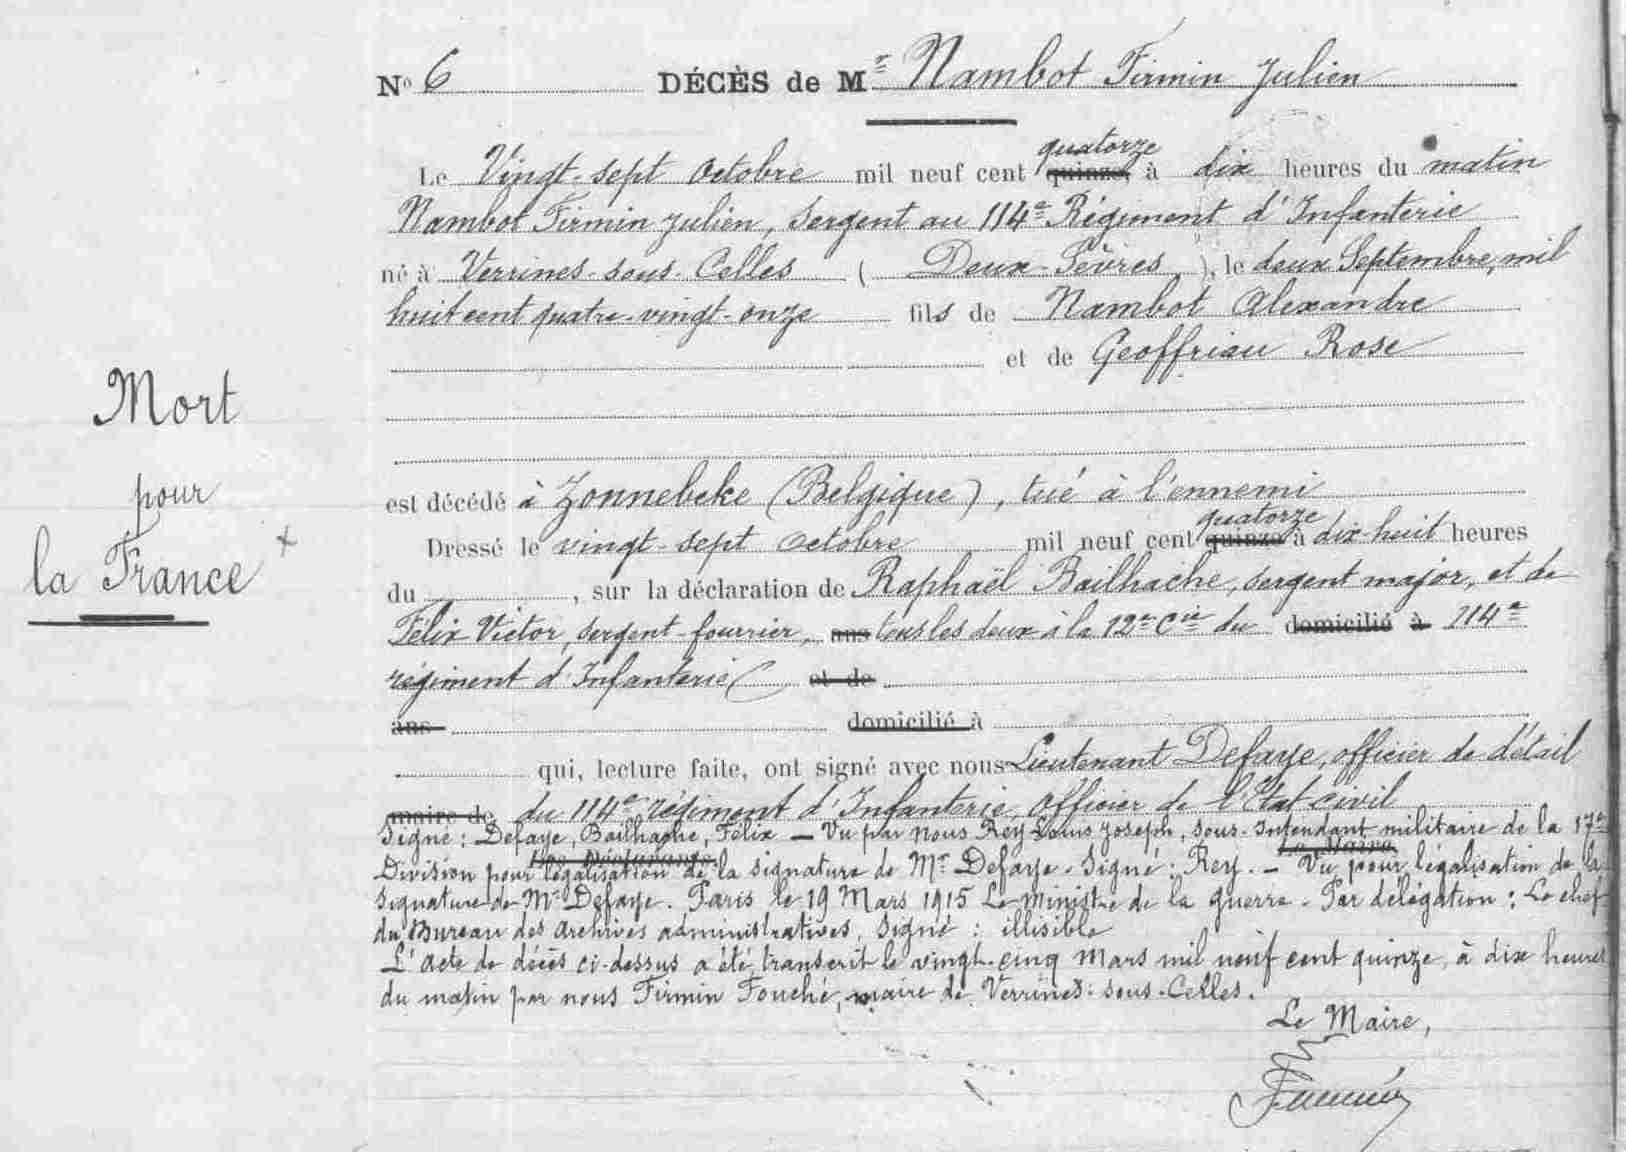 No 6 DÉCÈS de Mr Nambot Firmin Julien
Le Vingt-sept Octobre mil neuf cent quinze, quatorze à dix heures du matin
Nambot Firmin Julien, Sergent au 114e Régiment d'Infanterie
né à Verrines-sous-Celles (Deux-Sèvres), le deux Septembre, mil
huit cent quatre-vingt-onze fils de Nambot Alexandre
et de Geoffriau Rose
Mort
pour
la France
est décédé à Zonnebeke (Belgique), tué à l'ennemi
Dressé le vingt-sept Octobre mil neuf cent quinze quatorze à dix-huit heures
du , sur la déclaration de Raphaël Bailhache, sergent major, et de
Félix Victor, sergent-fourrier, ans tous les deux à la 12e Cie du domicilié à 114e
régiment d'Infanterie et de
ans domicilié à
qui, lecture faite, ont signé avec nous Lieutenant Defaye, officier de détail
maire de du 114e régiment d'Infanterie, Officier de l'Etat Civil
Signé : Defaye, Bailhache, Félix — Vu par nous Rey Louis Joseph, Sous-Intendant militaire de la 17e
Les Déclarants Le Maire
Division pour légalisation de la signature de Mr Defaye. Signé : Rey. — Vu pour légalisation de la
signature de Mr Defaye. Paris le 19 Mars 1915 Le Ministre de la guerre. Par délégation : Le chef
du Bureau des Archives administratives, Signé : illisible
L'acte de décès ci-dessus a été transcrit le vingt-cinq Mars mil neuf cent quinze, à dix heures
du matin par nous Firmin Fouché, maire de Verrines-sous-Celles.
Le Maire,